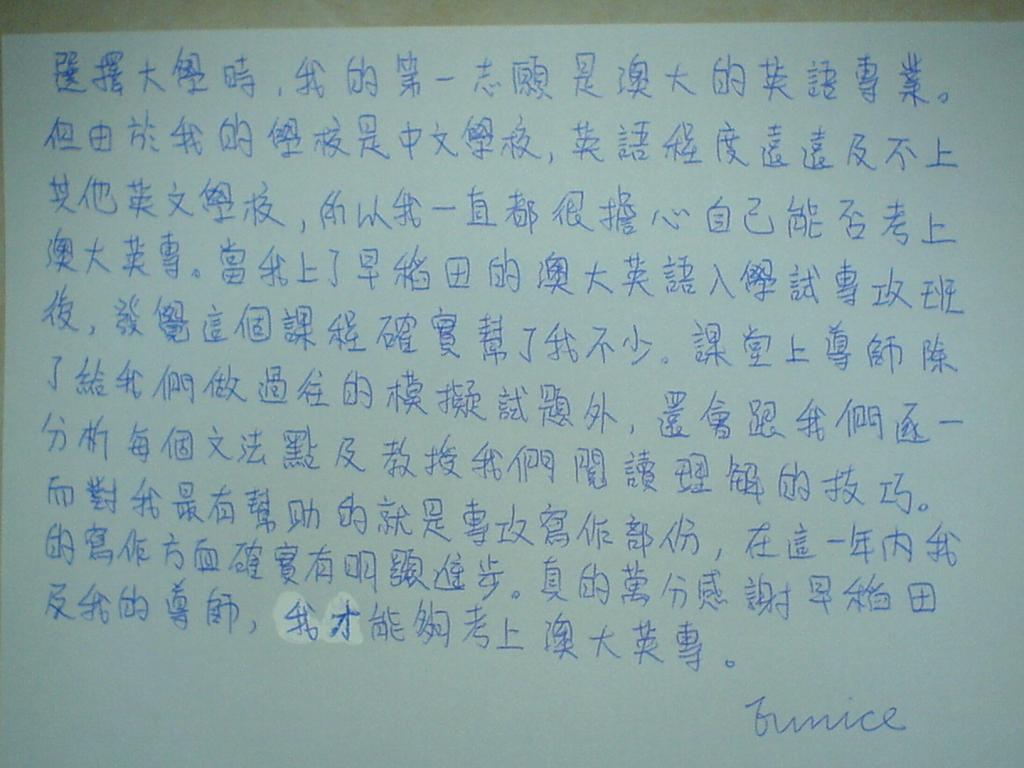 選擇大學時,我的第一志願是澳大的英語專業。
但由於我的學校是中文學校,英語程度遠遠及不上
其他英文學校,所以我一直都很擔心自己能否考上
澳大英專。當我上了早稻田的澳大英語入學試專攻班
後,發覺這個課程確實幫了我不少。課堂上導師除
了給我們做過往的模擬試題外,還會跟我們逐一
分析每個文法點及教授我們閱讀理解的技巧。
而對我最有幫助的就是專攻寫作部份,在這一年內我
的寫作方面確實有明顯進步。真的萬分感謝早稻田
及我的導師,我才能夠考上澳大英專。
Eunice